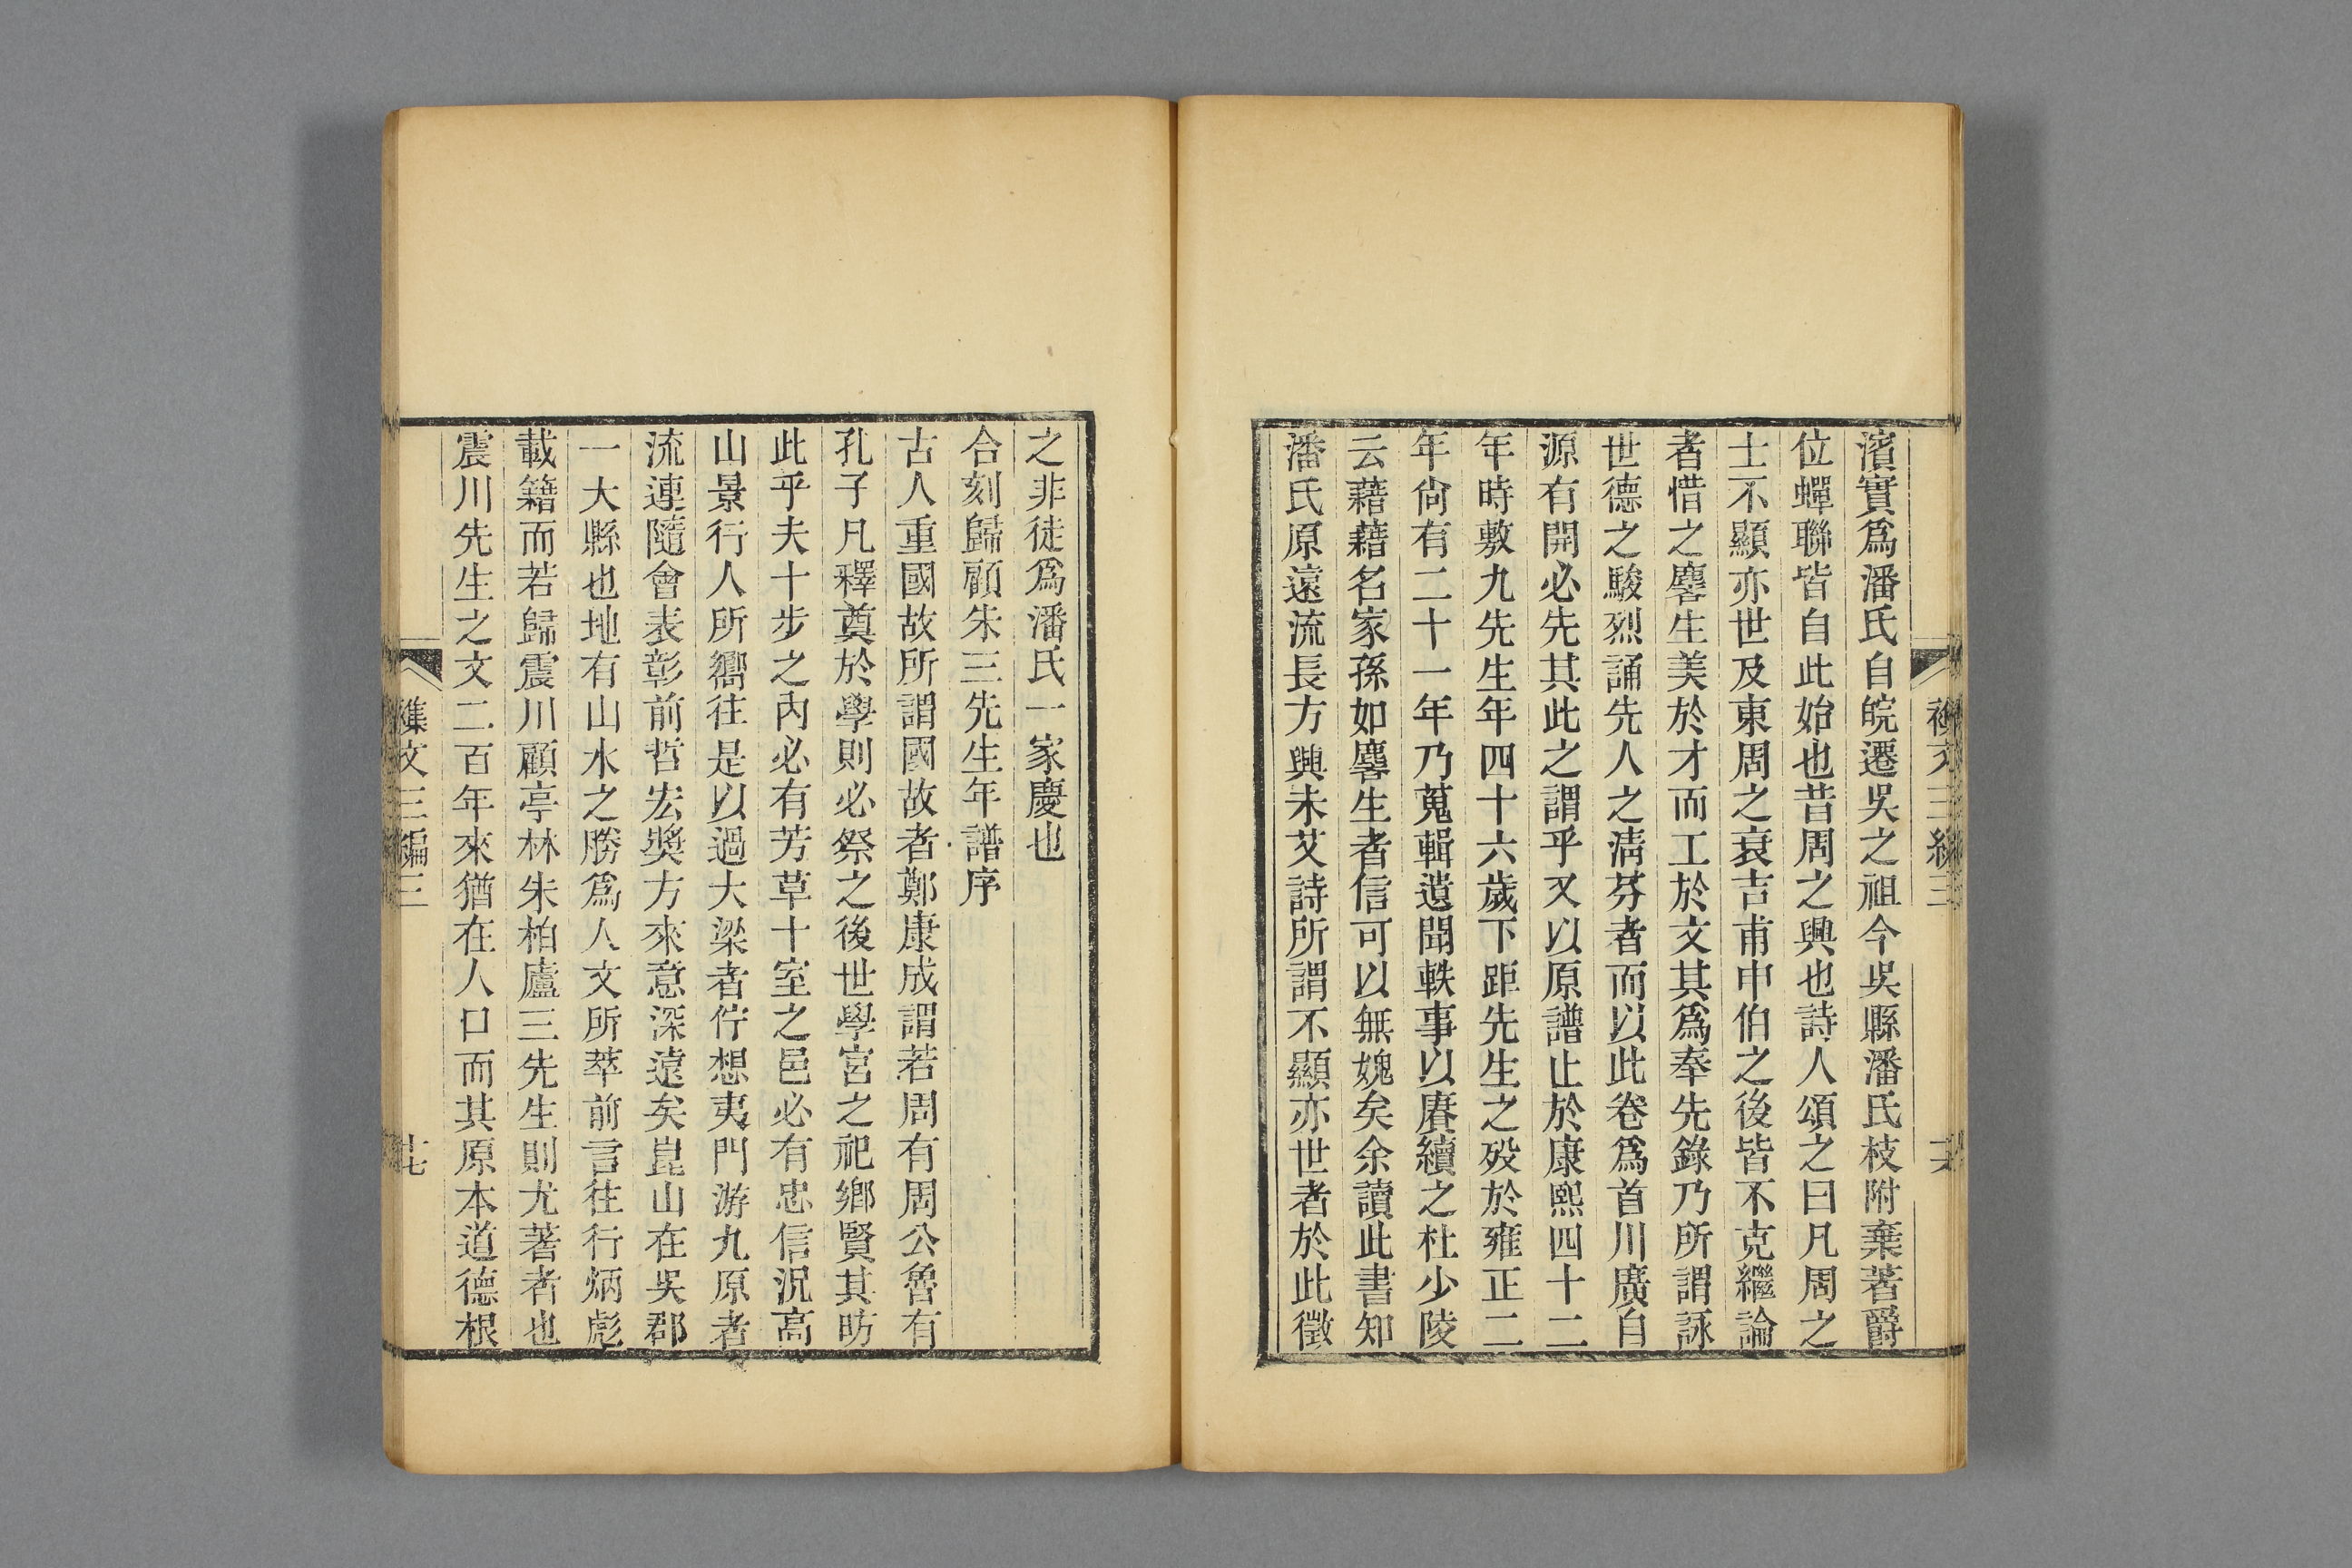 濱實爲潘氏自皖遷吳之祖今吳縣潘氏枝附葉著爵
位蟬聯皆自此始也昔周之興也詩人頌之曰凡周之
士不顯亦世及東周之衰吉甫申伯之後皆不克繼論
者惜之麐生美於才而工於文其爲奉先錄乃所謂詠
世德之駿烈誦先人之淸芬者而以此卷爲首川廣自
源有開必先其此之謂乎又以原譜止於康熙四十二
年時敷九先生年四十六歲下距先生之歿於雍正二
年尙有二十一年乃蒐輯遺聞軼事以賡續之杜少陵
云藉藉名家孫如麐生者信可以無媿矣余讀此書知
潘氏原遠流長方興未艾詩所謂不顯亦世者於此徵
之非徒爲潘氏一家慶也
合刻歸顧朱三先生年譜序
古人重國故所謂國故者鄭康成謂若周有周公魯有
孔子凡釋奠於學則必祭之後世學宮之祀鄉賢其昉
此乎夫十步之內必有芳草十室之邑必有忠信況高
山景行人所嚮往是以過大梁者佇想夷門游九原者
流連隨會表彰前哲宏奬方來意深遠矣崑山在吳郡
一大縣也地有山水之勝爲人文所萃前言往行炳彪
載籍而若歸震川顧亭林朱柏廬三先生則尤著者也
震川先生之文二百年來猶在人口而其原本道德根
襍文三編三
十七